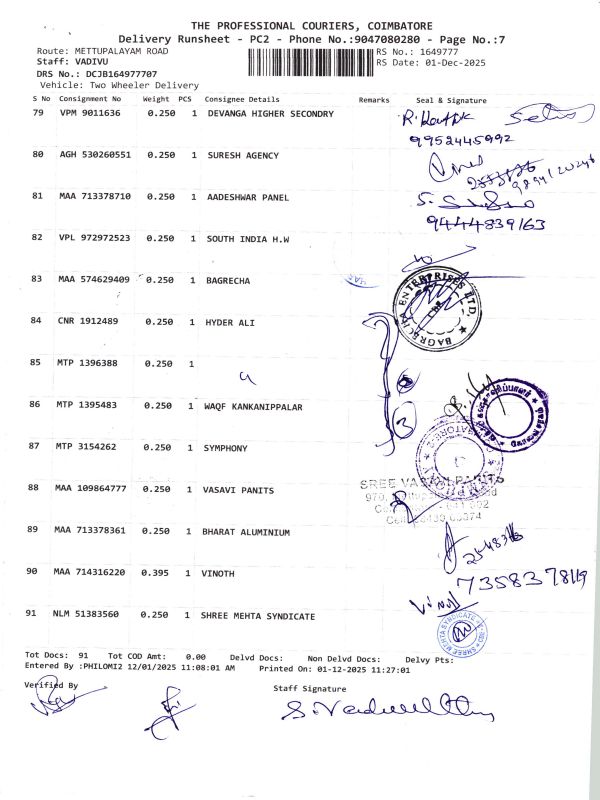 THE PROFESSIONAL COURIERS, COIMBATORE
Delivery Runsheet - PC2 - Phone No.:9047080280 - Page No.:7
Route: METTUPALAYAM ROAD RS No.: 1649777
Staff: VADIVU RS Date: 01-Dec-2025
DRS No.: DCJB164977707
Vehicle: Two Wheeler Delivery
S No Consignment No Weight PCS Consignee Details Remarks Seal & Signature
79 VPM 9011636 0.250 1 DEVANGA HIGHER SECONDRY
9952445992
80 AGH 530260551 0.250 1 SURESH AGENCY
81 MAA 713378710 0.250 1 AADESHWAR PANEL
9444839163
82 VPL 972972523 0.250 1 SOUTH INDIA H.W
83 MAA 574629409 0.250 1 BAGRECHA
BAGRECHA ENTERPRISES LTD.
84 CNR 1912489 0.250 1 HYDER ALI
85 MTP 1396388 0.250 1
86 MTP 1395483 0.250 1 WAQF KANKANIPPALAR
3
87 MTP 3154262 0.250 1 SYMPHONY
88 MAA 109864777 0.250 1 VASAVI PANITS
SREE VASAVI PANITS
89 MAA 713378361 0.250 1 BHARAT ALUMINIUM
90 MAA 714316220 0.395 1 VINOTH
Vinoth
91 NLM 51383560 0.250 1 SHREE MEHTA SYNDICATE
SHREE MEHTA SYNDICATE
Tot Docs: 91 Tot COD Amt: 0.00 Delvd Docs: Non Delvd Docs: Delvy Pts:
Entered By :PHILOMI2 12/01/2025 11:08:01 AM Printed On: 01-12-2025 11:27:01
Verified By
Staff Signature